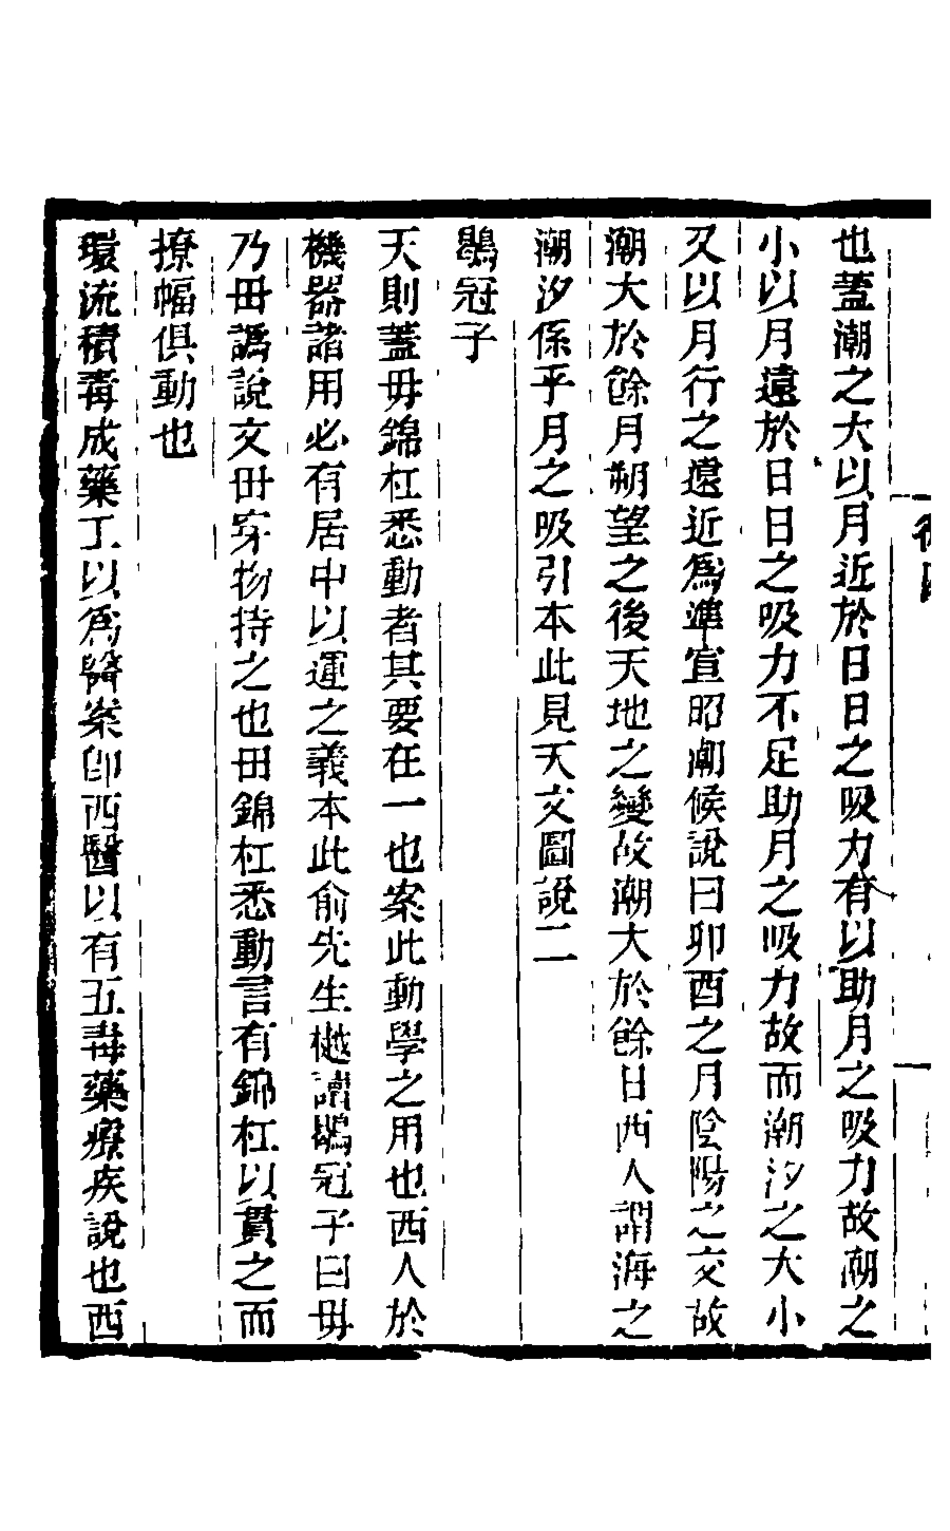 也蓋潮之大以月近於日日之吸力有以助月之吸力故潮之
小以月遠於日日之吸力不足助月之吸力故而潮汐之大小
又以月行之遠近爲準宣昭潮候說曰卯酉之月陰陽之交故
潮大於餘月朔望之後天地之變故潮大於餘日西人謂海之
潮汐係乎月之吸引本此見天文圖說二
鶡冠子
天則蓋毋錦杠悉動者其要在一也案此動學之用也西人於
機器諸用必有居中以運之義本此俞先生樾讀鶡冠子曰毋
乃毌譌說文毌穿物持之也毌錦杠悉動言有錦杠以貫之而
撩幅俱動也
環流積毒成藥工以爲醫案卽西醫以有五毒藥療疾說也西